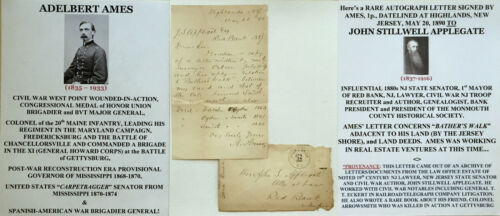 ADELBERT AMES
(1835 – 1933)
CIVIL WAR WEST POINT WOUNDED-IN-ACTION,
CONGRESSIONAL MEDAL of HONOR UNION
BRIGADIER and BVT MAJOR GENERAL,
COLONEL of the 20th MAINE INFANTRY, LEADING HIS
REGIMENT IN THE MARYLAND CAMPAIGN,
FREDERICKSBURG AND THE BATTLE OF
CHANCELLORSVILLE AND COMMANDED A BRIGADE
IN THE XI (GENERAL HOWARD CORPS) at the BATTLE
of GETTYSBURG,
POST-WAR RECONSTRUCTION ERA PROVISIONAL
GOVERNOR OF MISSISSIPPI 1868-1870,
UNITED STATES "CARPETBAGGER" SENATOR FROM
MISSISSIPPI 1870-1874
&
SPANISH-AMERICAN WAR BRIGADIER GENERAL!
Highlands N.J.
May 20
J. S. Applegate Esq
Red Bank N.J.
Dear Sir
a copy
of
Yours truly
A. Ames
John S. Applegate
Red Bank
Here's a RARE AUTOGRAPH LETTER SIGNED BY
AMES, 1p., DATELINED AT HIGHLANDS, NEW
JERSEY, MAY 20, 1890 TO
JOHN STILLWELL APPLEGATE
(1837-1916)
INFLUENTIAL 1880s NJ STATE SENATOR, 1st MAYOR
OF RED BANK, NJ, LAWYER, CIVIL WAR NJ TROOP
RECRUITER and AUTHOR, GENEALOGIST, BANK
PRESIDENT and PRESIDENT OF THE MONMOUTH
COUNTY HISTORICAL SOCIETY.
AMES' LETTER CONCERNS "BATHER'S WALK"
ADJACENT TO HIS LAND (BY THE JERSEY
SHORE), and LAND DEEDS. AMES WAS WORKING
IN REAL ESTATE VENTURES AT THIS TIME...
<>
*PROVENANCE: THIS LETTER CAME OUT OF AN ARCHIVE OF
LETTERS/DOCUMENTS FROM THE LAW OFFICE ESTATE OF
NOTED 19th CENTURY NJ LAWYER, JERSEY STATE SENATOR
AND CIVIL WAR AUTHOR, JOHN STILLWELL APPLEGATE. HE
WORKED WITH CIVIL WAR NOTABLES INCLUDING GENERAL T.
T. ECKERT IN RAILROAD/TELEGRAPH COMPANY LITIGATION,
HE ALSO WROTE A RARE BOOK ABOUT HIS FRIEND, COLONEL
ARROWSMITH WHO WAS KILLED IN ACTION AT GETTYSBURG